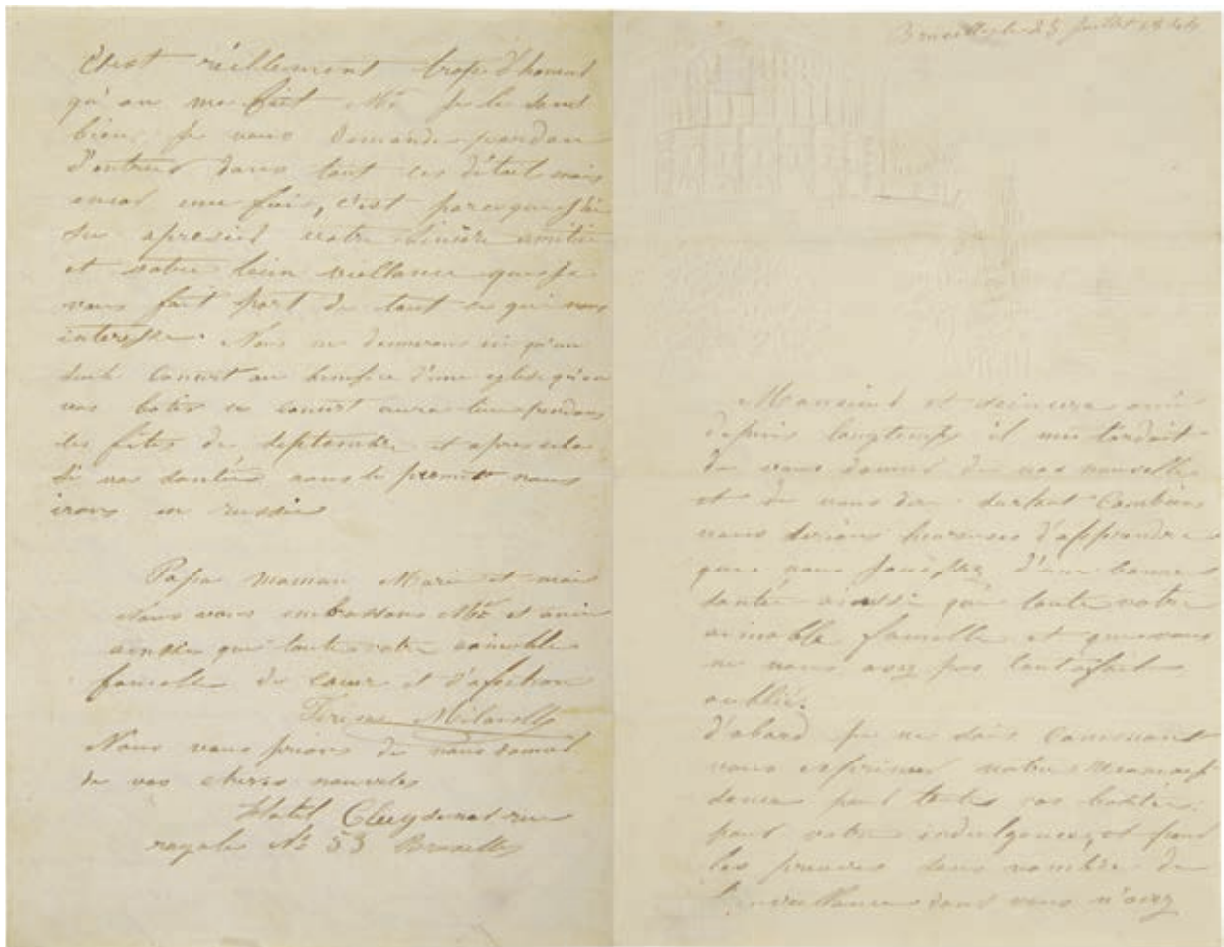 C'est reellement trop d'honeur
qu'on me fait Mr je le sent
bien, je vous demande pardon
d'entrer dans tout ces détail mais
encor une fois, c'est parceque j'ai
su apresier votre sincère amitié
et votre bien veillance que je
vous fait part de tout ce qui nous
interesse. Nous ne donnerons ici qu'un
seule concert au benefice d'une eglise qu'on
vas batir ce concert aura lieu pendant
les fêtes de septembre et apres cela
si nos santées nous le permet nous
irons en russie
Papa maman Maria et moi
Nous vous embrassons Mr et ami
ainsie que toute votre aimable
famille de cœur et d'afection
Teresa Milanollo
Nous vous prions de nous donner
de vos chères nouvelles
Hotel rue
royale No 53 Bruxelles
Bruxelles le 25 juillet
Monsieur et seincere ami
depuis longtemps il me tardait
de vous donner de nos nouvelle
et de vous dire surtout combien
nous serions heureuses d'apprendre
que vous jouissez d'une bonne
santée ainssi que toute votre
aimable famille et que vous
ne nous avez pas toutafait
oublié.
d'abord je ne sais comment
vous exprimer notre reconnais
sance pour toutes vos bontés,
pour votre indulgence, et pour
les preuves sans nombre de
bienveillance dont vous n'avez